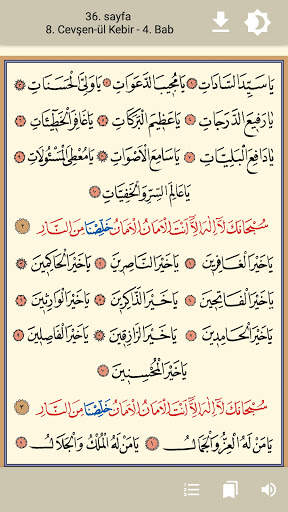 36. sayfa
8. Cevşen-ül Kebir - 4. Bab
يَا سَيِّدَ السَّادَاتِ يَا مُجِيبَ الدَّعَوَاتِ يَا وَلِيَّ الْحَسَنَاتِ
يَا رَفِيعَ الدَّرَجَاتِ يَا عَظِيمَ الْبَرَكَاتِ يَا غَافِرَ الْخَطِيئَاتِ
يَا دَافِعَ الْبَلِيَّاتِ يَا سَامِعَ الْأَصْوَاتِ يَا مُعْطِيَ الْمَسْئُولَاتِ
يَا عَالِمَ السِّرِّ وَالْخَفِيَّاتِ
سُبْحَانَكَ لَا إِلٰهَ إِلَّا أَنْتَ الْأَمَانُ الْأَمَانُ خَلِّصْنَا مِنَ النَّارِ ٢
يَا خَيْرَ الْغَافِرِينَ يَا خَيْرَ النَّاصِرِينَ يَا خَيْرَ الْحَاكِمِينَ
يَا خَيْرَ الْفَاتِحِينَ يَا خَيْرَ الذَّاكِرِينَ يَا خَيْرَ الْوَارِثِينَ
يَا خَيْرَ الْحَامِدِينَ يَا خَيْرَ الرَّازِقِينَ يَا خَيْرَ الْفَاصِلِينَ
يَا خَيْرَ الْمُحْسِنِينَ
سُبْحَانَكَ لَا إِلٰهَ إِلَّا أَنْتَ الْأَمَانُ الْأَمَانُ خَلِّصْنَا مِنَ النَّارِ ٣
يَا مَنْ لَهُ الْعِزُّ وَالْجَمَالُ يَا مَنْ لَهُ الْمُلْكُ وَالْجَلَالُ